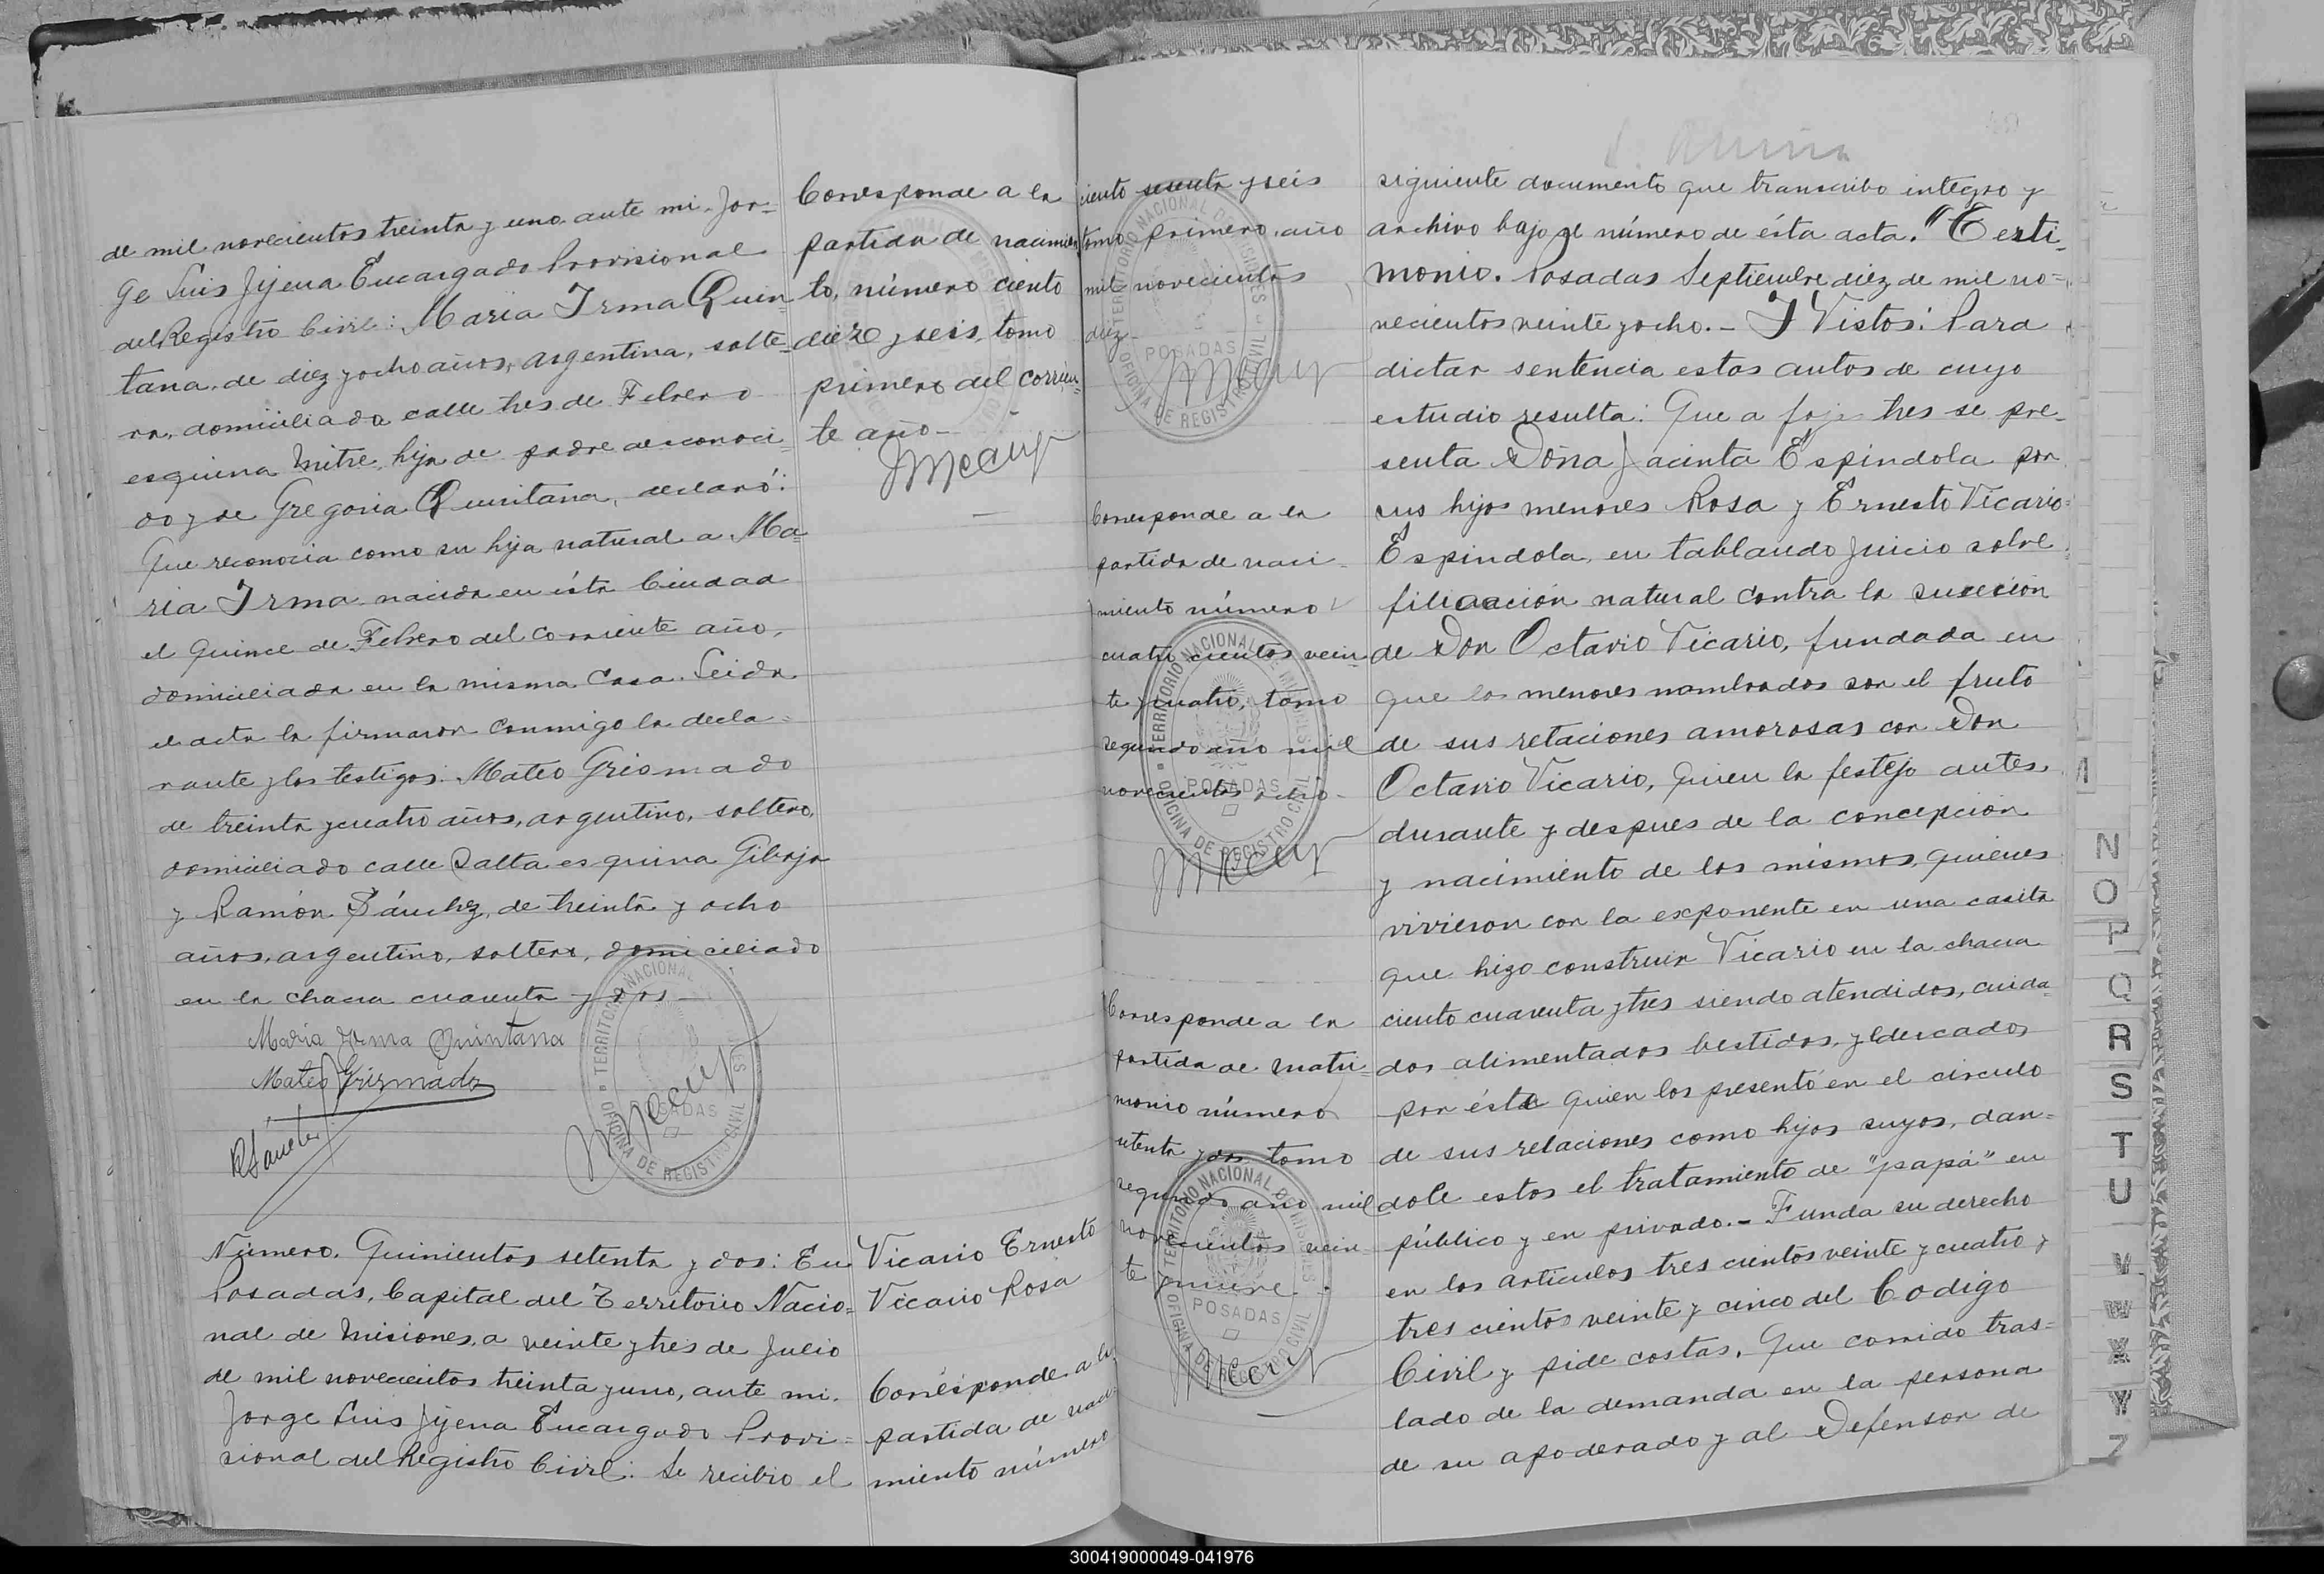 de mil novecientos treinta y uno ante mi Jor-
ge Luis Jijena Encargado Provisional
del Registro Civil: Maria Irma Quin
tana, de diez y ocho años, argentina, solte-
ra, domiciliada calle tres de Febrero
esquina Mitre, hija de padre desconoci
do y de Gregoria Quintana, declaró:
Que reconocia como su hija natural a Ma-
ria Irma nacida en ésta Ciudad
el quince de Febrero del corriente año,
domiciliada en la misma casa. Leida
el acta la firmaron conmigo la decla-
rante y los testigos: Mateo Grismado
de treinta y cuatro años, argentino, soltero,
domiciliado calle Salta esquina Gibaja
y Ramón Sánchez, de treinta y ocho
años, argentino, soltero, domiciliado
en la chacra cuarenta y dos
Maria Irma Quintana
Mateo Grismado
RSánchez
TERRITORIO NACIONAL DE MISIONES
POSADAS
OFICINA DE REGISTRO CIVIL
Corresponde a la
partida de nacimien
to, número ciento
diez y seis, tomo
primero del corrien-
te año-
Número. Quinientos setenta y dos: En
Posadas, Capital del Territorio Nacio-
nal de Misiones, a veinte y tres de Julio
de mil novecientos treinta y uno, ante mi.
Jorge Luis Jijena Encargado Provi-
sional del Registro Civil: Se recibio el
Vicario Ernesto
Vicario Rosa
Corresponde a la
partida de naci-
miento número
ciento sesenta y seis
tomo primero, año
mil novecientos
diez-
TERRITORIO NACIONAL DE MISIONES
POSADAS
OFICINA DE REGISTRO CIVIL
Corresponde a la
partida de naci-
miento número
cuatro cientos vein
te y cuatro, tomo
segundo año mil
novecientos ocho-
TERRITORIO NACIONAL DE MISIONES
POSADAS
OFICINA DE REGISTRO CIVIL
Corresponde a la
partida de matri-
monio número
ochenta y dos tomo
segundo año mil
novecientos vein
te y nueve.
TERRITORIO NACIONAL DE MISIONES
POSADAS
OFICINA DE REGISTRO CIVIL
siguiente documento que transcribo integro y
archivo bajo el número de ésta acta. "Testi-
monio. Posadas Septiembre diez de mil no-
vecientos veinte y ocho.- Y Vistos: Para
dictar sentencia estos autos de cuyo
estudio resulta: Que a foja tres se pre-
senta Doña Jacinta Espindola por
sus hijos menores Rosa y Ernesto Vicario-
Espindola, en tablando juicio sobre
filiacación natural contra la suseción
de Don Octavio Vicario, fundada en
que los menores nombrados son el fruto
de sus relaciones amorosas con Don
Octavio Vicario, quien la festejo antes,
durante y despues de la concepción
y nacimiento de los mismos, quienes
vivieron con la exponente en una casita
que hizo construir Vicario en la chacra
ciento cuarenta y tres siendo atendidos, cuida-
dos alimentados bestidos, y edercados
por éste quien los presentó en el circulo
de sus relaciones como hijos suyos, dan-
dole estos el tratamiento de "papá" en
público y en privado.- Funda su derecho
en los articulos tres cientos veinte y cuatro y
tres cientos veinte y cinco del Codigo
Civil y pide costas. Que corrido tras-
lado de la demanda en la persona
de su apoderado y al Defensor de
N
O
P
Q
R
S
T
U
V
W
X
Y
Z
300419000049-041976